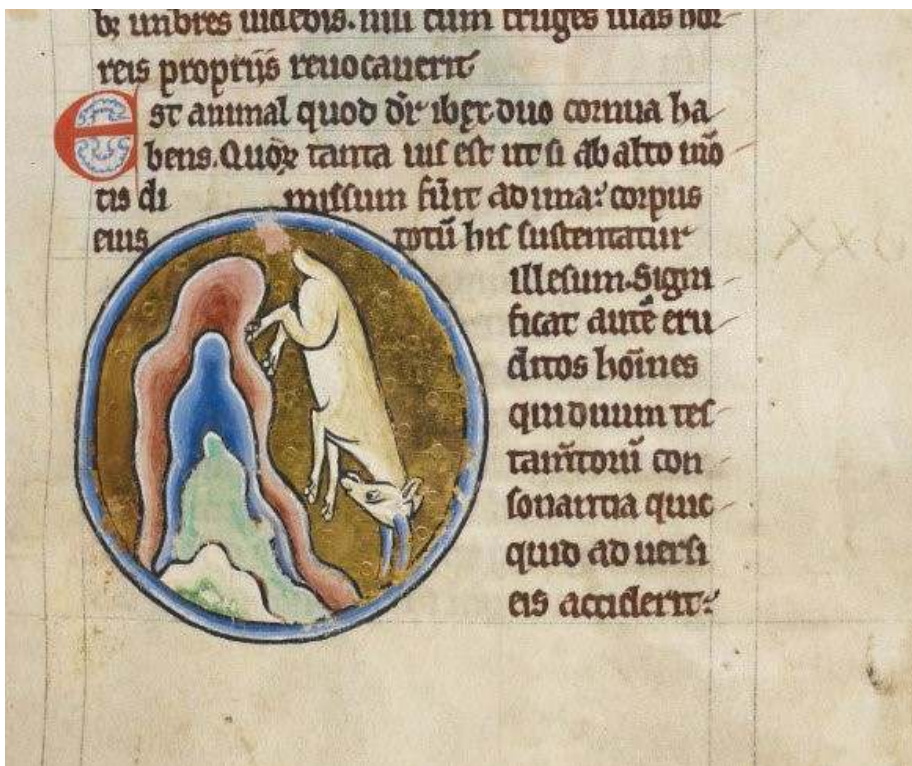 bꝫ imbres uidebis. nisi cum fruges suas hor
reis proprijs reuocauerit
Est animal quod dr̄ ibex duo cornua ha
bens. Quoꝝ tanta uis est ut si ab alto mō
tis di missum fūit ad ima: corpus
eius totū his sustentatur
illesum. Signi
ficat autē eru
ditos hoīnes
qui duum tes
tam̄torū con
sonantia quic
quid aduersi
eis acciderit: